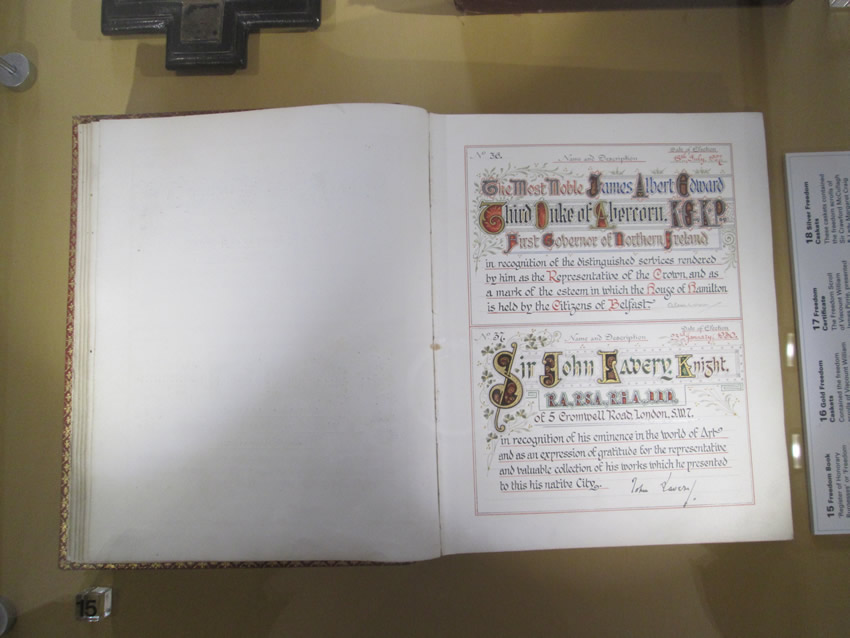 No 36.
Name and Description
Date of Election
The Most Noble James Albert Edward
Third Duke of Abercorn. K.G., K.P.
First Governor of Northern Ireland
in recognition of the distinguished services rendered
by him as the Representative of the Crown, and as
a mark of the esteem in which the House of Hamilton
is held by the Citizens of Belfast.
No 37.
Name and Description
Date of Election
January, 1930.
Sir John Lavery, Knight.
R.A., R.S.A., R.H.A.
of 5 Cromwell Road, London, S.W.7.
in recognition of his eminence in the world of Art
and as an expression of gratitude for the representative
and valuable collection of his works which he presented
to this his native City.
John Lavery.
15
18 Silver Freedom
Caskets
These caskets contained
the freedom scrolls of
Sir Crawford McCullagh
17 Freedom
Certificate
The Freedom Scroll
of Viscount William
16 Gold Freedom
Caskets
Contained the freedom
scrolls of Viscount William
15 Freedom Book
'Register of Honorary
Burgesses' or 'Freedom